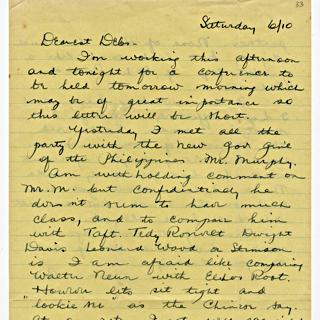 33
Saturday 6/10
Dearest Debs.
I'm working this afternoon
and tonight for a conference to
be held tomorrow morning which
may be of great importance so
this letter will be short.
Yesterday I met all the
party with the new Gov Gen'l
of the Philippines. Mr. Murphy.
Am withholding comment on
Mr. M. but confidentially he
doesn't seem to have much
class, and to compare him
with Taft. Tedy Roosevelt Dwight
Davis Leonard Wood or Stimson
is I am afraid like comparing
Walter with Elihu Root.
However lets sit tight and
"lookie see" as the Chinese say.